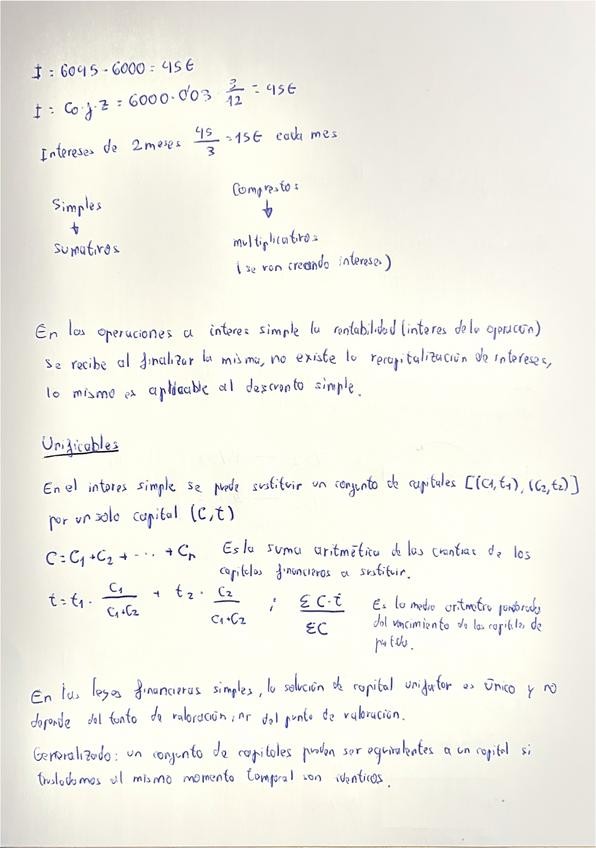 I = 6045 - 6000 = 45€
I = Co·j·z = 6000·0'03 · 3/12 = 45€
Intereses de 2 meses 45/3 = 15€ cada mes
Simples
↓
sumativos
Compestos
↓
multiplicativos
(se van creando intereses)
En las operaciones a interes simple la rentabilidad (interes de la operación)
se recibe al finalizar la misma, no existe la recapitalización de intereses,
lo mismo es aplicable al descuento simple.
Unificables
En el interes simple se puede sustituir un conjunto de capitales [(C1, t1), (C2, t2)]
por un solo capital (C, t)
C = C1 + C2 + ··· + Cn Es la suma aritmética de las cuantias de los
capitales financieros a sustituir.
t = t1 · C1/(C1+C2) + t2 · C2/(C1+C2) ; ΣC·t/ΣC Es la media aritmetra ponderada
del vencimiento de los capitales de
partida.
En las leyes financieras simples, la solución de capital unificador es único y no
depende del tanto de valoración, ni del punto de valoración.
Generalizado: un conjunto de capitales pueden ser equivalentes a un capital si
trasladamos al mismo momento temporal son identicos.